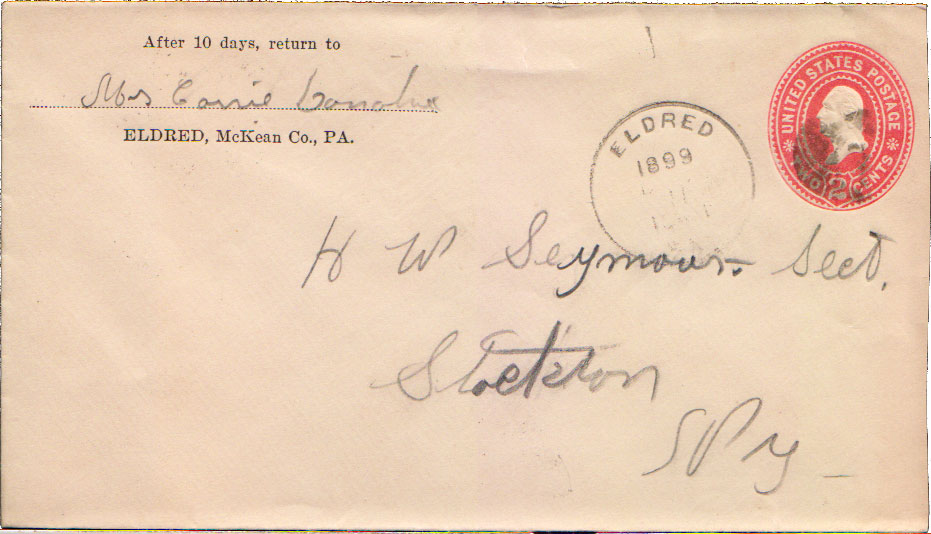 After 10 days, return to
Mrs Carrie
ELDRED, McKean Co., PA.
ELDRED
1899
UNITED STATES POSTAGE
2 CENTS
H W Seymour. Sect.
Stockton